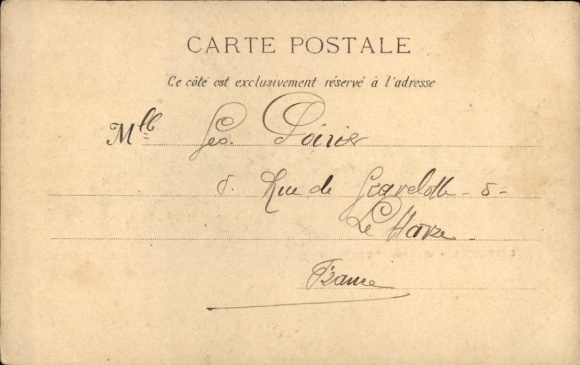 CARTE POSTALE
Ce côté est exclusivement réservé à l'adresse
Mlle Geo. Poirier
8. Rue de Gravelotte - 8 -
Le Havre
France